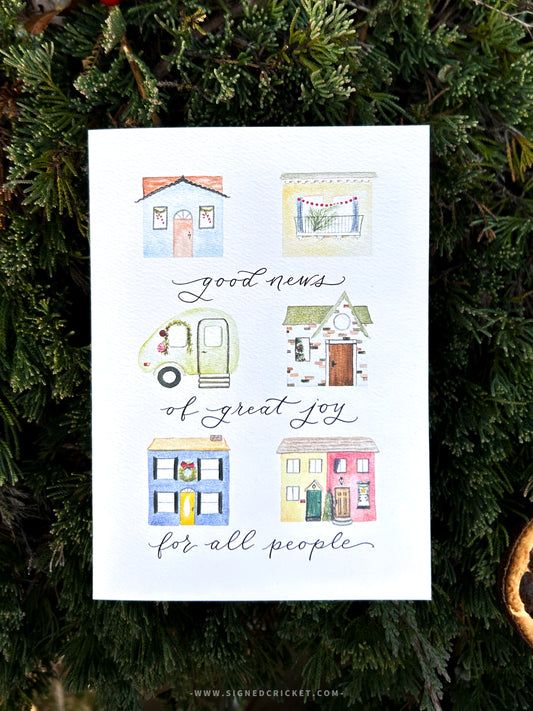 good news
of great joy
for all people
-WWW.SIGNEDCRICKET.COM-